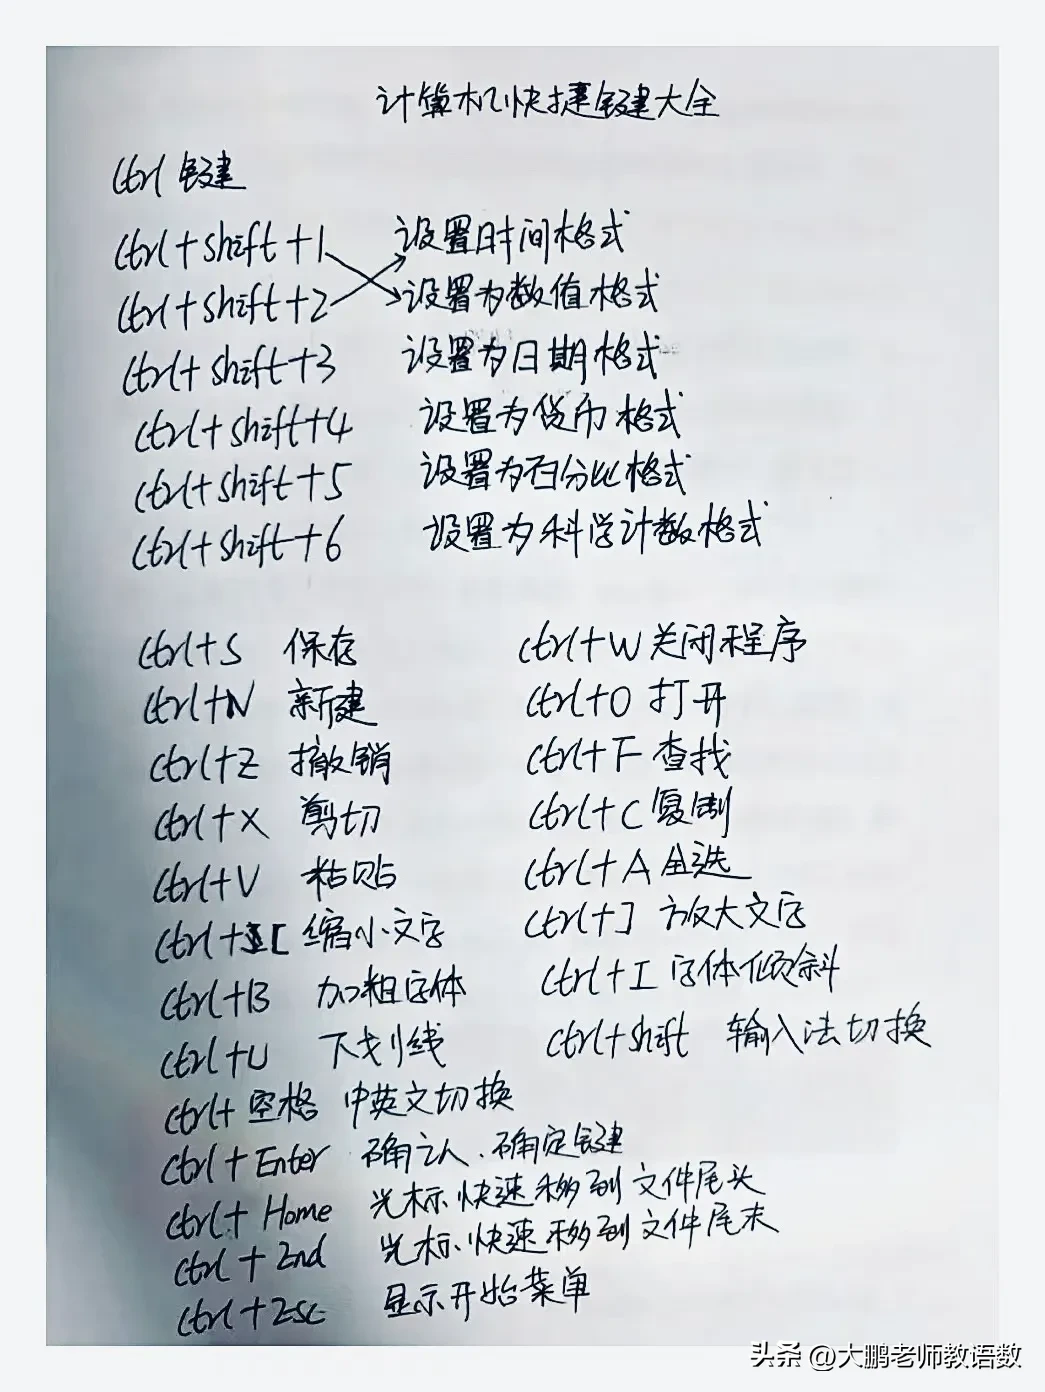 计算机快捷键大全
Ctrl 键
Ctrl+shift+1 设置时间格式
Ctrl+shift+2 设置为数值格式
Ctrl+shift+3 设置为日期格式
Ctrl+shift+4 设置为货币格式
Ctrl+shift+5 设置为百分比格式
Ctrl+shift+6 设置为科学计数格式
Ctrl+S 保存 Ctrl+W 关闭程序
Ctrl+N 新建 Ctrl+O 打开
Ctrl+Z 撤销 Ctrl+F 查找
Ctrl+X 剪切 Ctrl+C 复制
Ctrl+V 粘贴 Ctrl+A 全选
Ctrl+[ 缩小文字 Ctrl+] 放大文字
Ctrl+B 加粗字体 Ctrl+I 字体倾斜
Ctrl+U 下划线 Ctrl+shift 输入法切换
Ctrl+空格 中英文切换
Ctrl+Enter 确认、确定键
Ctrl+Home 光标快速移到文件尾头
Ctrl+End 光标快速移到文件尾末
Ctrl+Esc 显示开始菜单
头条 @大鹏老师教语数